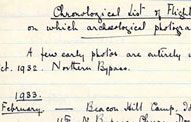 Chronological List of Flight
on which archaeological photogra
A few early photos are entirely u
Oct. 1932. Northern Bypass.
1933.
February — Beacon Hill Camp,
N. Bypass